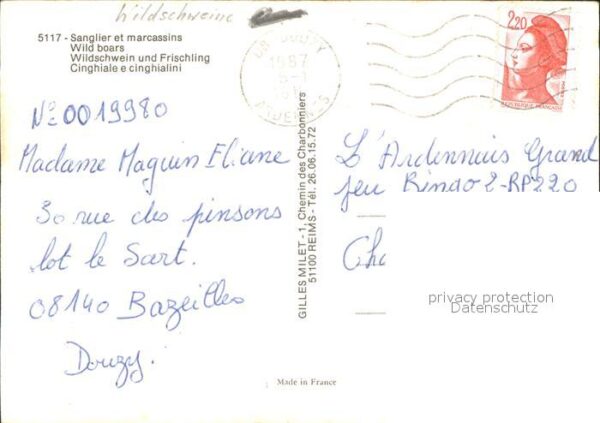 Wildschweine
5117 - Sanglier et marcassins
Wild boars
Wildschwein und Frischling
Cinghiale e cinghialini
08 DOUZY
1987
ARDENNES
2,20
REPUBLIQUE FRANÇAISE
No 0019980
Madame Maguin Eliane
30 rue des pinsons
lot le Sart.
08140 Bazeilles
Douzy.
GILLES MILET - 1, Chemin des Charbonniers
51100 REIMS - Tél. 26.06.15.72
L'Ardennais Grand
jeu Bingo 2-RP220
Cha
privacy protection
Datenschutz
Made in France